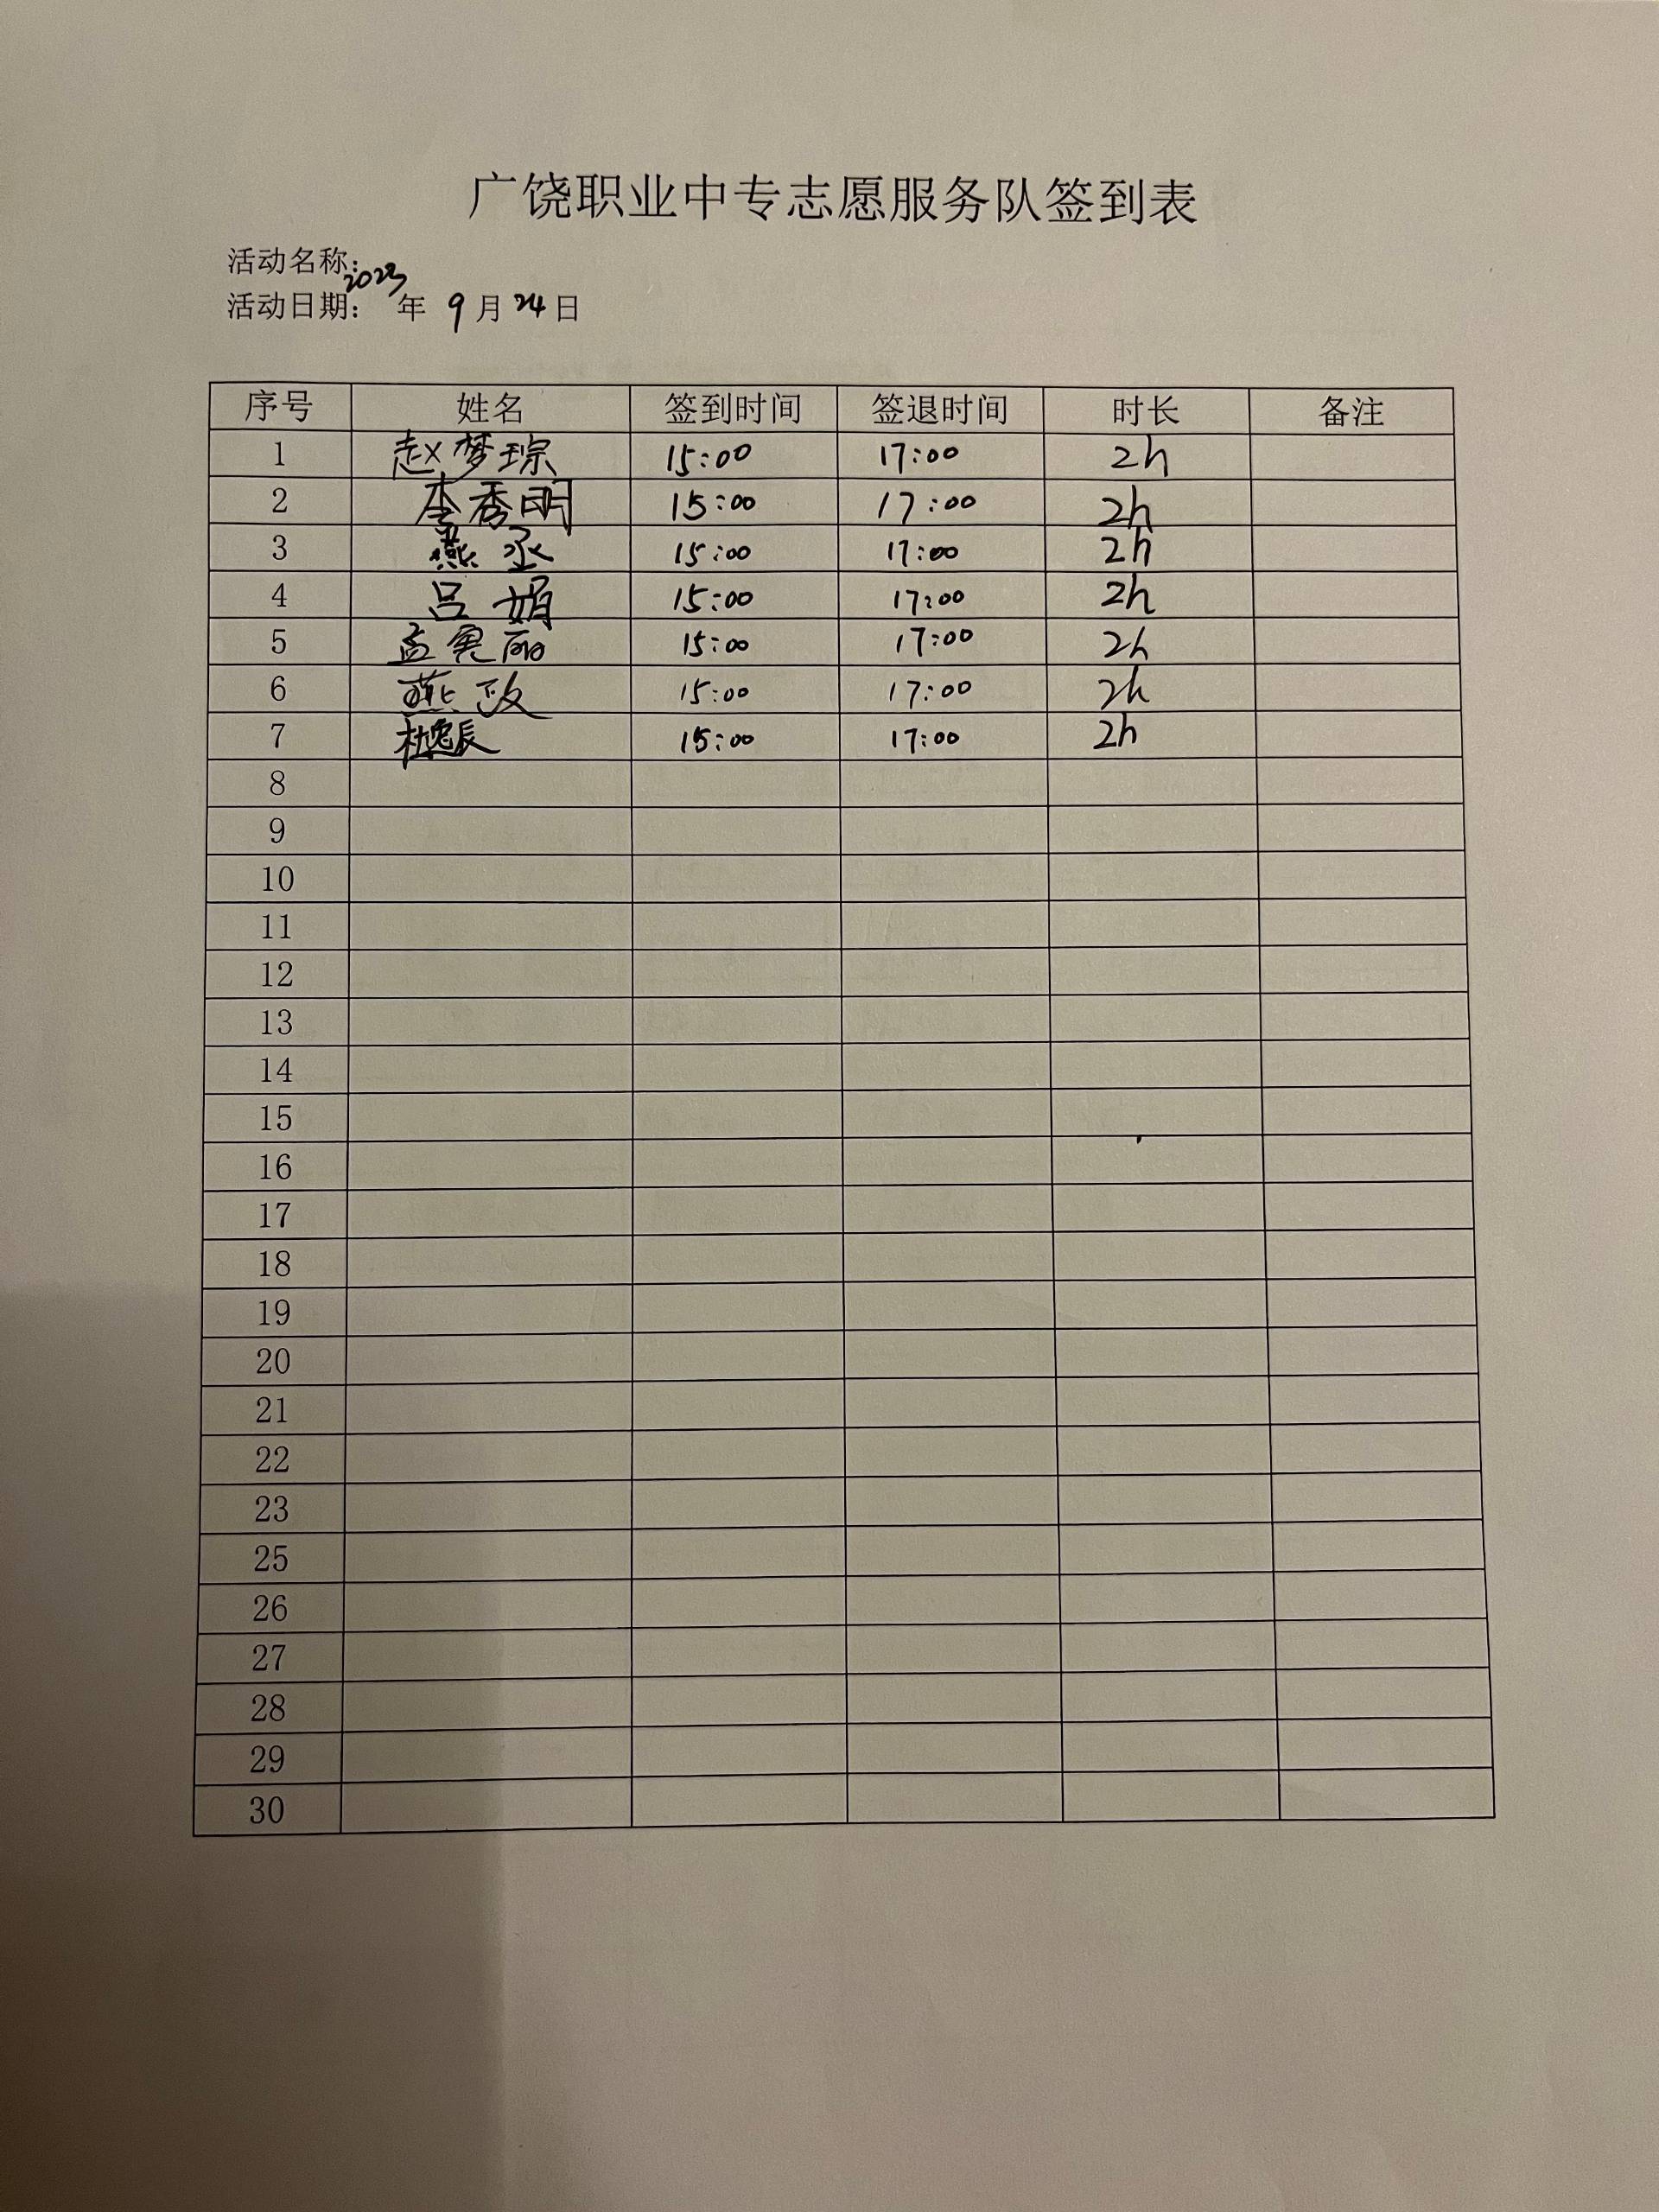 广饶职业中专志愿服务队签到表
活动名称：
活动日期：2023年 9 月 24 日
序号 姓名 签到时间 签退时间 时长 备注
1 赵梦琮 15:00 17:00 2h
2 李秀明 15:00 17:00 2h
3 燕丞 15:00 17:00 2h
4 吕娟 15:00 17:00 2h
5 15:00 17:00 2h
6 15:00 17:00 2h
7 15:00 17:00 2h
8
9
10
11
12
13
14
15
16
17
18
19
20
21
22
23
25
26
27
28
29
30